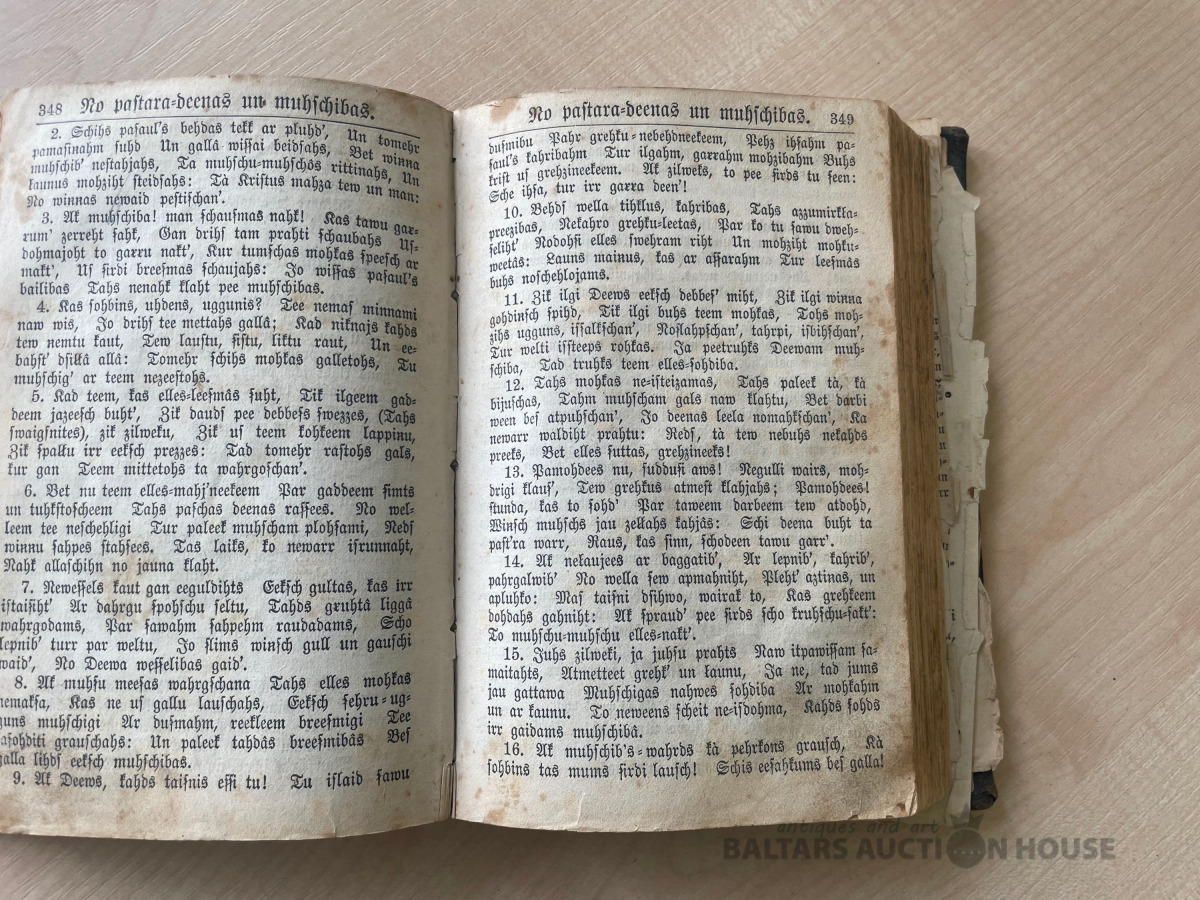 348 No paſtara-deenas un muhſchibas.
2. Schihs paſaul's behdas tekk ar pluhd', Un tomehr
pamaſinahm ſuhd Un gallâ wiſſai beidſahs, Bet winna
muhſchib' neſtahjahs, Ta muhſchu-muhſchôs rittinahs, Un
kaunus mohziht ſteidſahs: Tà Kriſtus mahza tew un man:
No winnas newaid peſtiſchan'.
3. Ak muhſchiba! man ſchauſmas nahk! Kas tawu gaɼ-
rum' zerreht ſahk, Gan drihſ tam prahti ſchaubahs Uſ-
dohmajoht to gaɼɼu nakt', Kur tumſchas mohkas ſpeeſch ar
makt', Uſ ſirdi breeſmas ſchaujahs: Jo wiſſas paſaul's
bailibas Tahs nenahk klaht pee muhſchibas.
4. Kas ſohbins, uhdens, uggunis? Tee nemaſ minnami
naw wis, Jo drihſ tee mettahs gallâ; Kad niknajs kahds
tew nemtu kaut, Tew lauſtu, ſiſtu, liktu raut, Un ee-
bahſt' dſiłłâ allâ: Tomehr ſchihs mohkas galletohs, Tu
muhſchig' ar teem nezeeſtohs.
5. Kad teem, kas elles-leeſmâs ſuht, Tik ilgeem gad-
deem jazeeſch buht', Zik daudſ pee debbeſs ſwezzes, (Tahs
ſwaigſnites), zik zilweku, Zik uſ teem kohkeem lappinu,
Zik ſpallu irr eekſch prezzes: Tad tomehr raſtohs gals,
kur gan Teem mittetohs ta wahrgoſchan'.
6. Bet nu teem elles-mahj'neekeem Par gaddeem ſimts
un tuhkſtoſcheem Tahs paſchas deenas raſſees. No wel-
leem tee neſchehligi Tur paleek muhſcham plohſami, Nedſ
winnu ſahpes ſtahſees. Tas laiks, ko newarr iſrunnaht,
Nahk allaſchihn no jauna klaht.
7. Neweſſels kaut gan eeguldihts Eekſch gultas, kas irr
iſtaiſiht' Ar dahrgu ſpohſchu ſeltu, Tahds gruhtâ liggâ
wahrgodams, Par ſawahm ſahpehm raudadams, Scho
lepnib' turr par weltu, Jo ſlims winſch gull un gauſchi
waid', No Deewa weſſelibas gaid'.
8. Ak muhſu meeſas wahrgſchana Tahs elles mohkas
nemakſa, Kas ne uſ gallu lauſchahs, Eekſch ſehru-ug-
guns muhſchigi Ar duſmahm, reekleem breeſmigi Tee
aſohditi grauſchahs: Un paleek tahdâs breeſmibâs Beſ
galla lihdſ eekſch muhſchibas.
9. Ak Deews, kahds taiſnis eſſi tu! Tu iſlaid ſawu
No paſtara-deenas un muhſchibas. 349
duſmibu Pahr grehku-nebehdneekeem, Pehz ihſahm pa-
ſaul's kahribahm Tur ilgahm, gaɼɼahm mohzibahm Buhs
kriſt uſ grehzineekeem. Ak zilweks, to pee ſirds tu ſeen:
Sche ihſa, tur irr gaɼɼa deen'!
10. Behdſ wella tihklus, kahribas, Tahs azzumirkla-
preezibas, Nekahro grehku-leetas, Par ko tu ſawu dweh-
ſeliht' Nodohſi elles ſwehram riht Un mohziht mohku-
weetâs: Launs mainus, kas ar aſſarahm Tur leeſmâs
buhs noſchehlojams.
11. Zik ilgi Deews eekſch debbeſ' miht, Zik ilgi winna
gohdinſch ſpihd, Tik ilgi buhs teem mohkas, Tohs moh-
zihs ugguns, iſſalkſchan', Noſlahpſchan', tahrpi, isbihſchan',
Tur welti iſſteeps rohkas. Ja peetruhks Deewam muh-
ſchiba, Tad truhks teem elles-ſohdiba.
12. Tahs mohkas ne-iſteizamas, Tahs paleek tà, kà
bijuſchas, Tahm muhſcham gals naw klahtu, Bet darbi
ween beſ atpuhſchan', Jo deenas leela nomahkſchan', Ka
newarr waldiht prahtu: Redſ, tà tew nebuhs nekahds
preeks, Bet elles ſuttas, grehzineeks!
13. Pamohdees nu, ſudduſi aws! Negulli wairs, moh-
drigi klauſ', Tew grehkus atmeſt klahjahs; Pamohdees!
ſtunda, kas to ſohd' Par taweem darbeem tew atdohd,
Winſch muhſchs jau zellahs kahjâs: Schi deena buht ta
paſt'ra warr, Raus, kas ſinn, ſchodeen tawu garr'.
14. Ak nekaujees ar baggatib', Ar lepnib', kahrib',
pahrgalwib' No wella ſew apmahniht, Pleht' aztinas, un
apluhko: Maſ taiſni dſihwo, wairak to, Kas grehkeem
dohdahs gahniht: Ak ſpraud' pee ſirds ſcho kruhſchu-ſakt':
To muhſchu-muhſchu elles-nakt'.
15. Juhs zilweki, ja juhſu prahts Naw itpawiſſam ſa-
maitahts, Atmetteet grehk' un kaunu, Ja ne, tad jums
jau gattawa Muhſchigas nahwes ſohdiba Ar mohkahm
un ar kaunu. To neweens ſcheit ne-iſdohma, Kahds ſohds
irr gaidams muhſchibâ.
16. Ak muhſchib's-wahrds kà pehrkons grauſch, Kà
ſohbins tas mums ſirdi lauſch! Schis eeſahkums beſ galla!
antiques and art
BALTARS AUCTION HOUSE